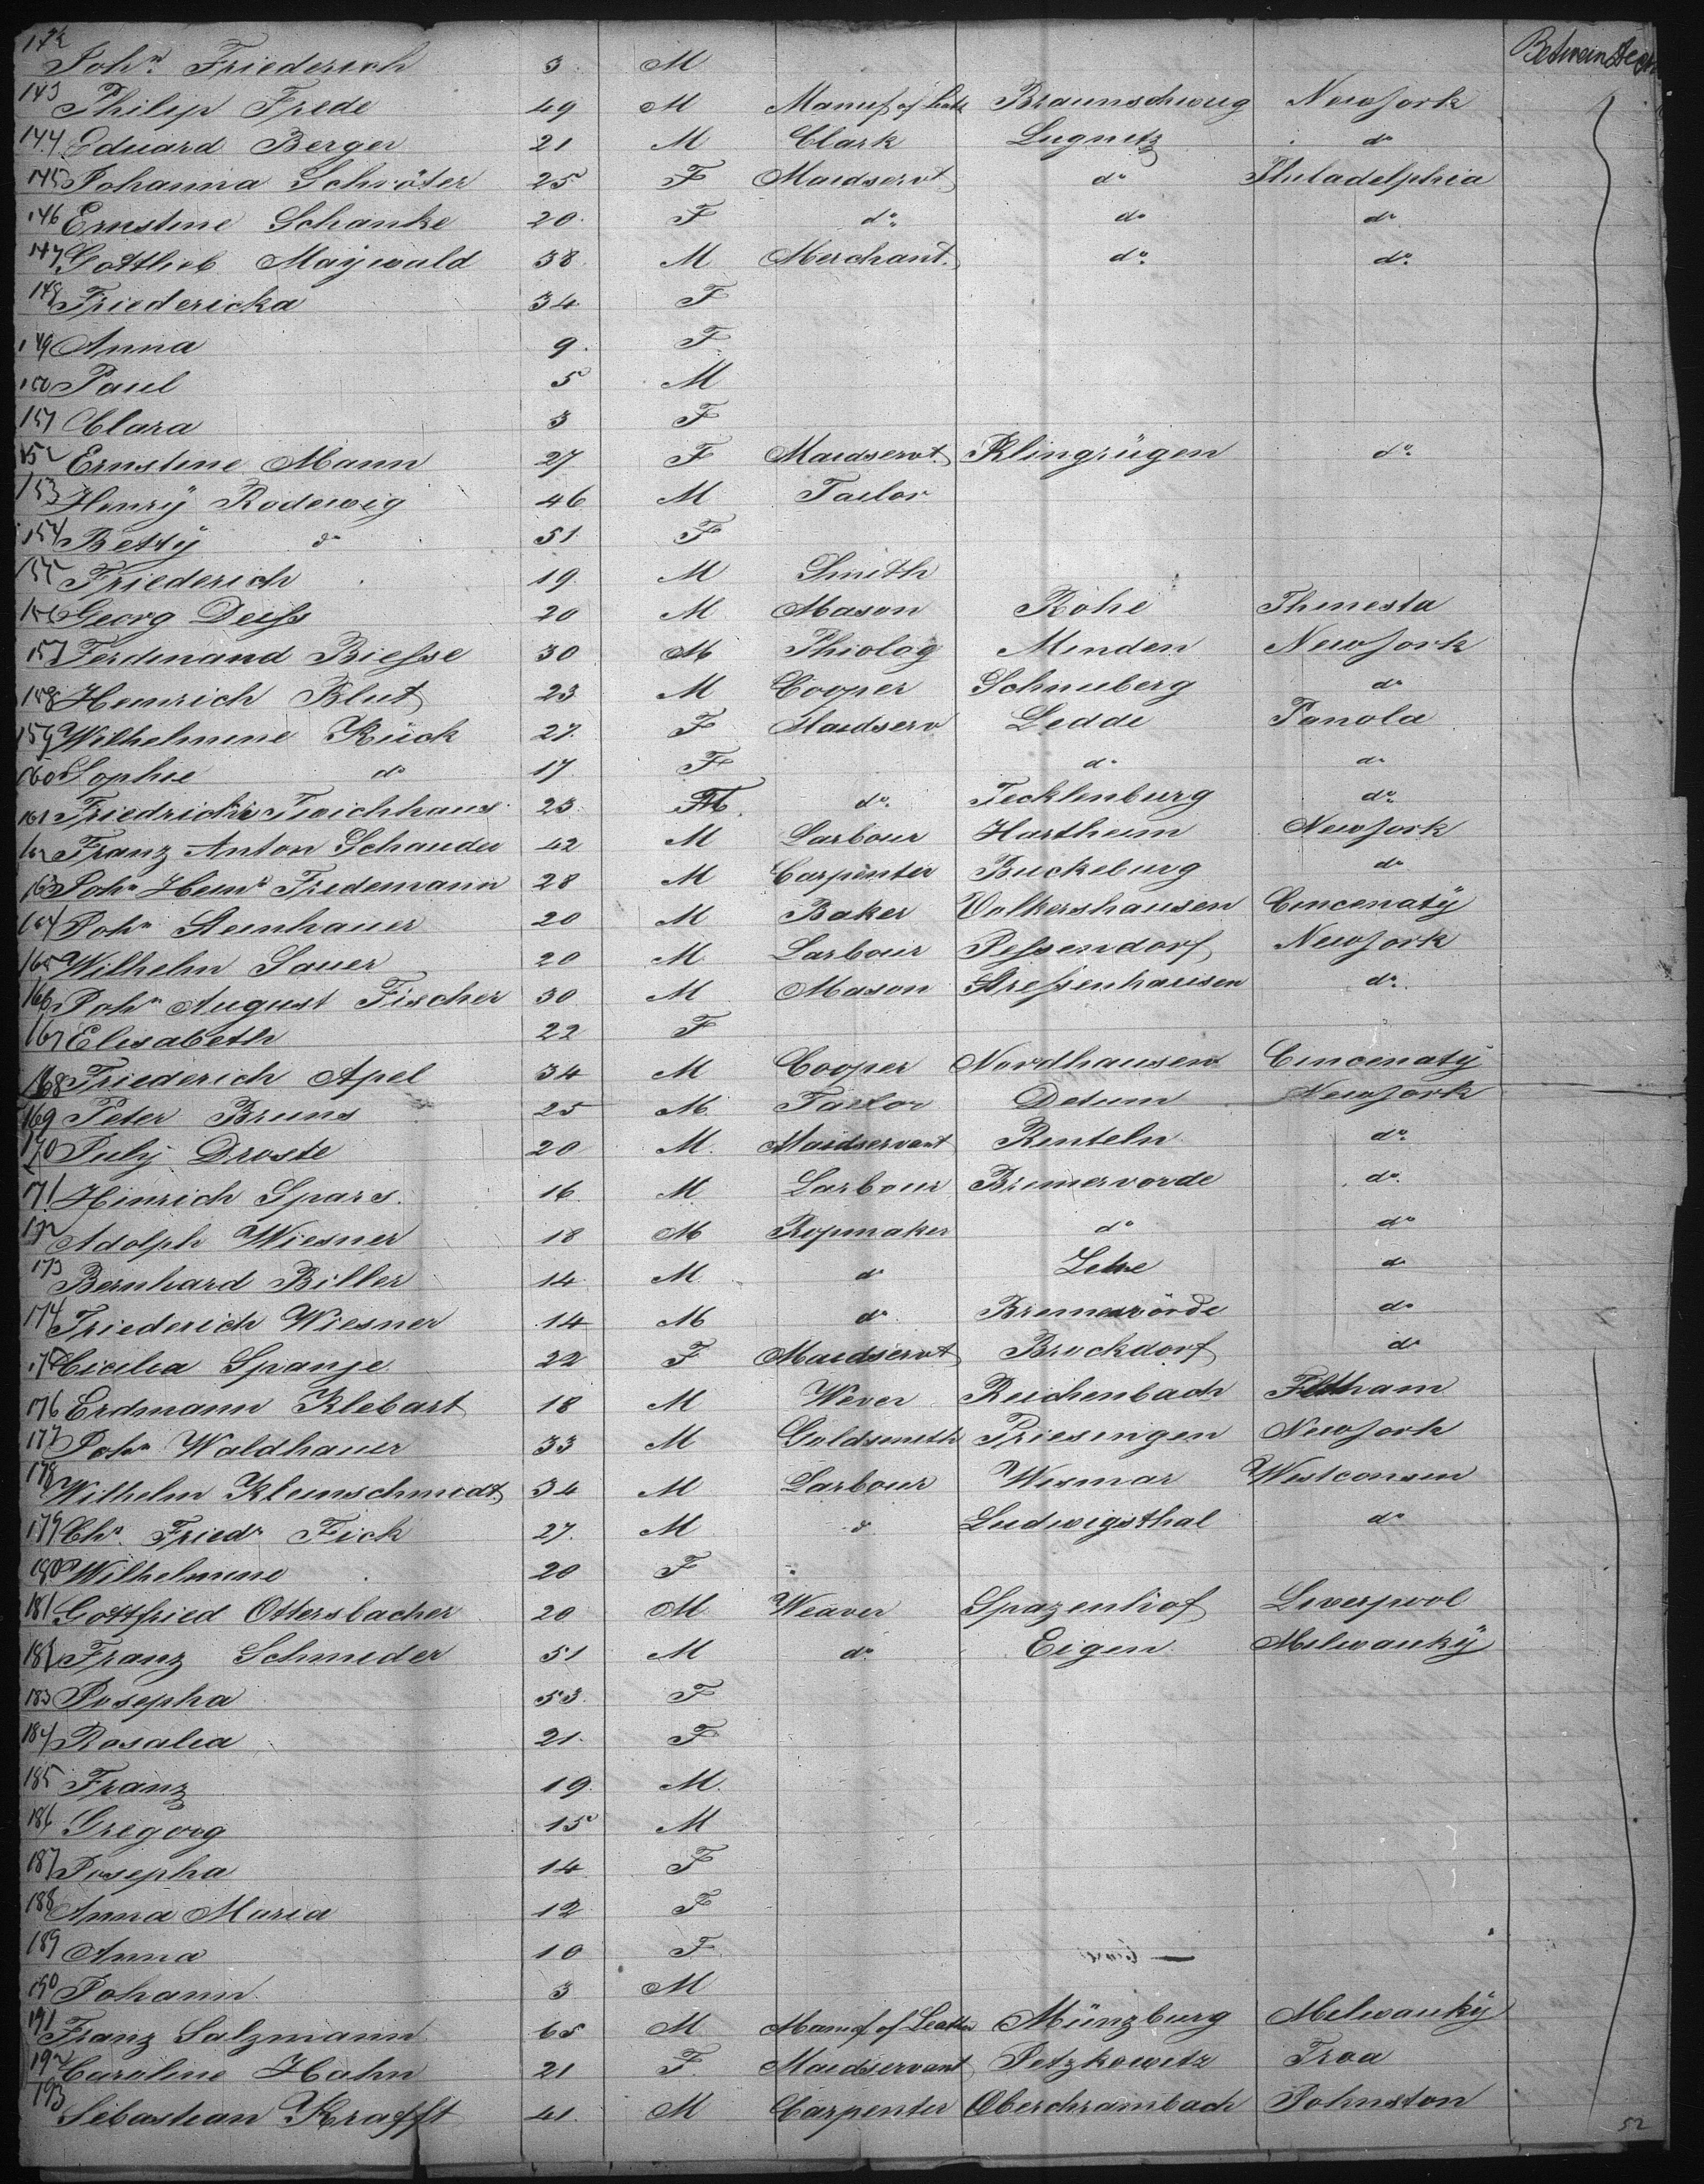 142 Joh.n Friederich 3 M Between Deck
143 Philip Frede 49 M Manuf of Leath Braunschweig New York
144 Eduard Berger 21 M Clark Lugnitz do
145 Johanna Schröter 25 F Maidservt do Philadelphia
146 Ernstine Schanke 20 F do do do
147 Gottlieb Maywald 38 M Merchant do do
148 Friedericka 34 F
149 Anna 9 F
150 Paul 5 M
151 Clara 3 F
152 Ernstine Mann 27 F Maidservt Klingrügen do
153 Henrÿ Rodewig 46 M Tailor
154 Bettÿ do 51 F
155 Friederich 19 M Smith
156 Georg Deiss 20 M Mason Röhe Thinesta
157 Ferdinand Biesse 30 M Thiolog Minden New York
158 Heinrich Blut 23 M Cooper Schneeberg do
159 Wilhelmine Rück 27 F Maidserv Ledde Panola
160 Sophie do 17 F do do
161 Friedricke Twichhaus 23 F do Tecklenburg do
162 Franz Anton Schauder 42 M Larbour Hartheim New York
163 Joh.n Hein.r Friedemann 28 M Carpenter Buckeburg do
164 Joh.n Steinhauer 20 M Baker Volkershausen Cincenatÿ
165 Wilhelm Sauer 20 M Larbour Pessendorf New York
166 Joh.n August Fischer 30 M Mason Stressenhausen do
167 Elisabeth 22 F
168 Friederich Apel 34 M Cooper Nordhausen Cincenatÿ
169 Peter Bruns 25 M Tailor Detum New York
170 July Droste 20 M Maidservant Rinteln do
171 Hinrich Spars 16 M Larbour Bremervorde do
172 Adolph Wiesner 18 M Ropmaker do do
173 Bernhard Biller 14 M do Lehe do
174 Friederich Wiesner 14 M do Bremervörde do
175 Cicilia Spanje 22 F Maidservt Brockdorf do
176 Erdmann Klebart 18 M Wever Reichenbach Feltham
177 Joh.n Waldhauer 33 M Goldsmith Priesingen New York
178 Wilhelm Kleinschmidt 34 M Larbour Wismar Westconsin
179 Ch.n Fried.r Fick 27 M do Ludwigsthal do
180 Wilhelmine 20 F
181 Gottfried Ottersbacher 20 M Weaver Spazenhof Liverpool
182 Franz Schneider 51 M do Eigen Milwaukÿ
183 Josepha 53 F
184 Rosalia 21 F
185 Franz 19 M
186 Gregorg 15 M
187 Josepha 14 F
188 Anna Maria 12 F
189 Anna 10 F
190 Johann 3 M
191 Franz Salzmann 65 M Manuf of Leather Münzburg Milwaukÿ
192 Caroline Hahn 21 F Maidservant Petzkowitz Troa
193 Sebastian Krafft 41 M Carpenter Oberchrambach Johnston
52